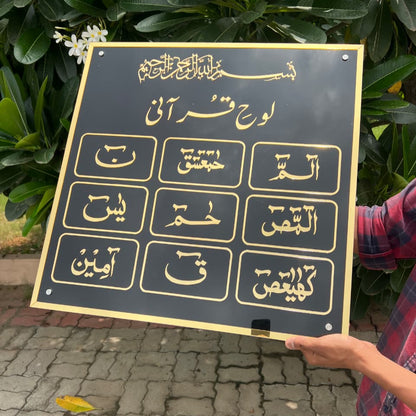 بسم الله الرحمن الرحيم
لوحِ قرآنی
الٓمّٓ حمٓعٓسٓقٓ نٓ
الٓمّٓصٓ حٰمٓ یٰسٓ
کٓهٰیٰعٓصٓ قٓ اٰمِیْن